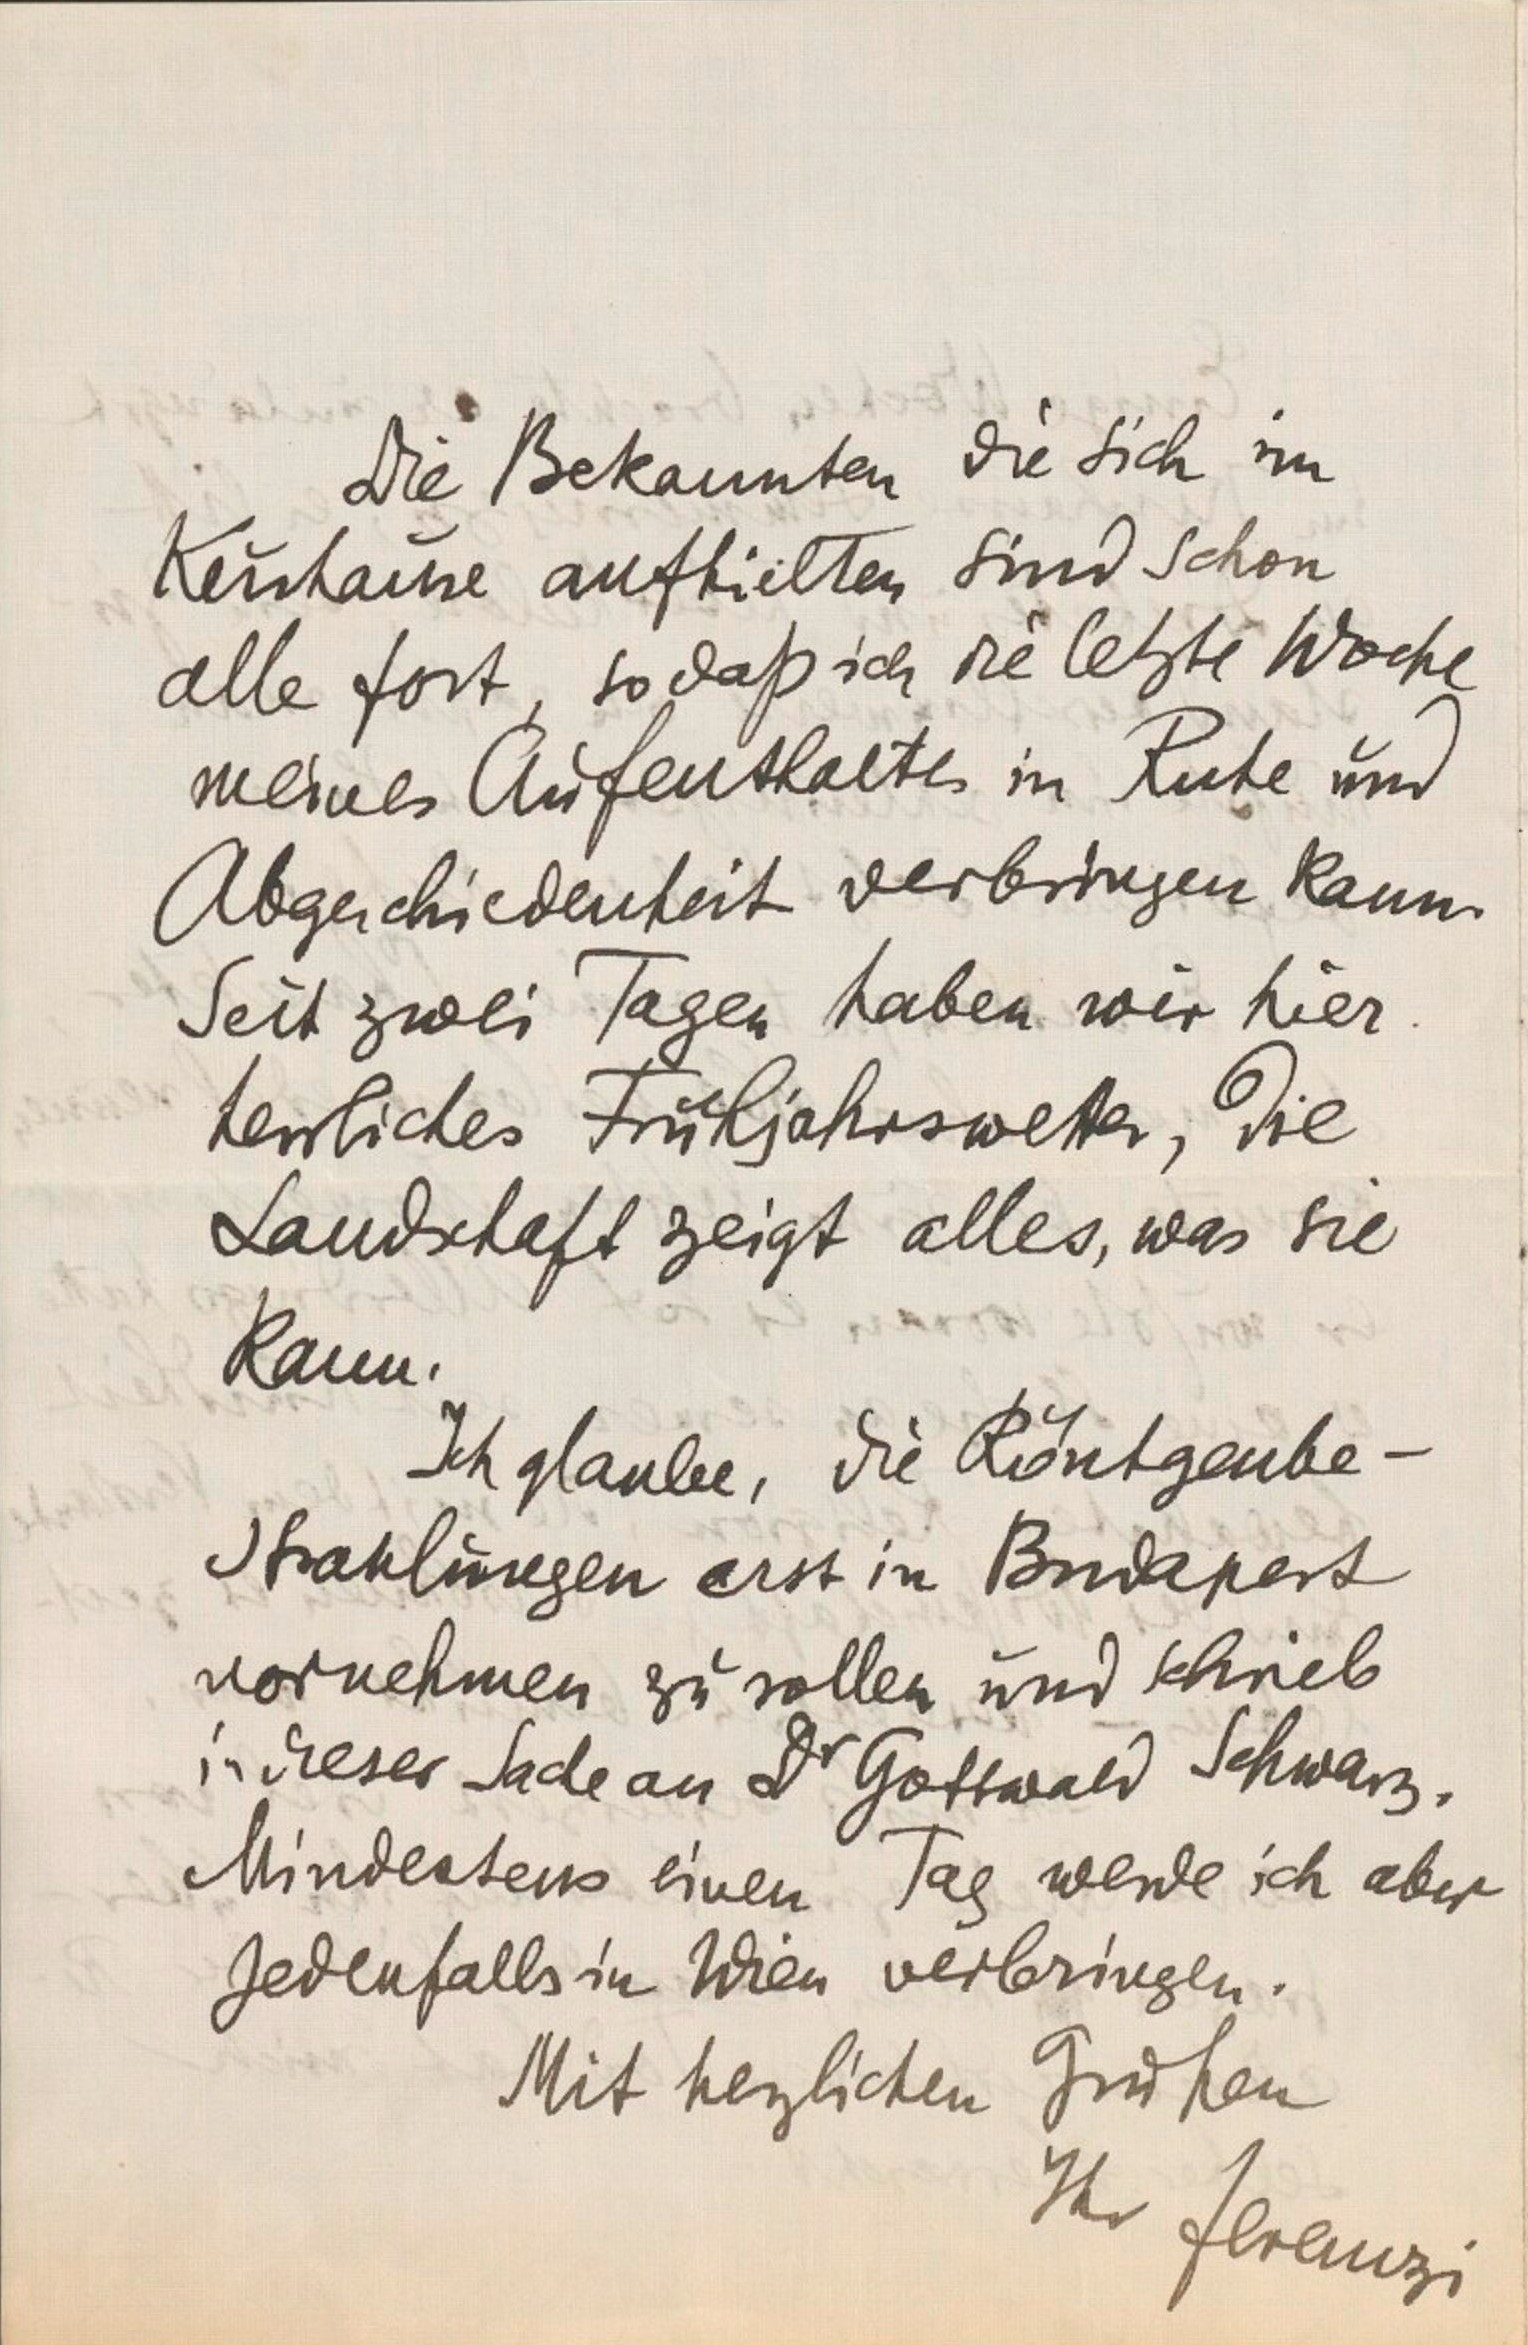 Die Bekannten die sich im
Kurhause aufhielten sind schon
alle fort, sodaß ich die letzte Woche
meines Aufenthaltes in Ruhe und
Abgeschiedenheit verbringen kann.
Seit zwei Tagen haben wir hier
herrliches Frühjahrswetter, die
Landschaft zeigt alles, was sie
kann.
Ich glaube, die Röntgenbe-
strahlungen erst in Budapest
vornehmen zu sollen und schrieb
in dieser Sache an Dr Gottwald Schwarz.
Mindestens einen Tag werde ich aber
jedenfalls in Wien verbringen.
Mit herzlichen Grüßen
Ihr Ferenczi